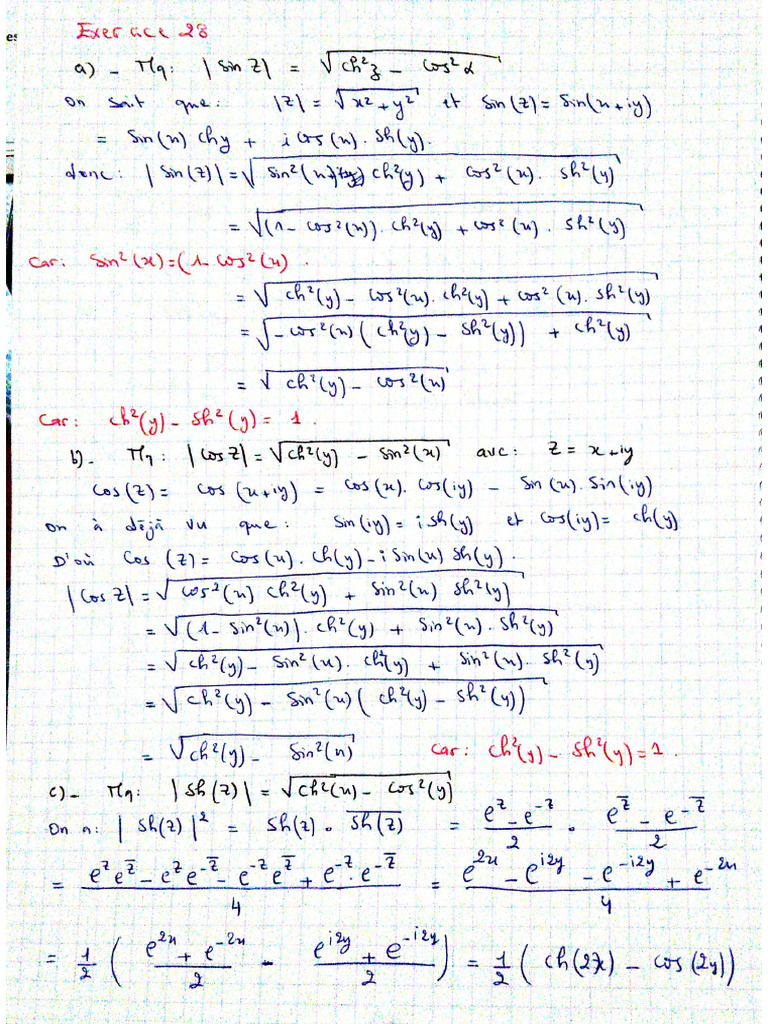 es
Exercice 28
a) - Mq: |sin z| = √(ch²z - cos²x)
On sait que: |z| = √(x² + y²) et sin(z) = sin(x+iy)
= sin(x) chy + i cos(x). sh(y).
donc: |sin(z)| = √(sin²(x) ch²(y) + cos²(x). sh²(y))
= √((1- cos²(x)). ch²(y) + cos²(x). sh²(y))
Car: sin²(x) = (1- cos²(x).
= √(ch²(y) - cos²(x). ch²(y) + cos²(x). sh²(y))
= √(-cos²(x)(ch²(y) - sh²(y)) + ch²(y))
= √(ch²(y) - cos²(x))
Car: ch²(y) - sh²(y) = 1.
b) - Mq: |cos z| = √(ch²(y) - sin²(x)) avc: z = x+iy
cos(z) = cos(x+iy) = cos(x). cos(iy) - sin(x). sin(iy)
on à déjà vu que: sin(iy) = i sh(y) et cos(iy) = ch(y)
D'où cos (z) = cos(x). ch(y) - i sin(x) sh(y).
|cos z| = √(cos²(x) ch²(y) + sin²(x) sh²(y))
= √((1- sin²(x)). ch²(y) + sin²(x). sh²(y))
= √(ch²(y) - sin²(x). ch²(y) + sin²(x). sh²(y))
= √(ch²(y) - sin²(x)(ch²(y) - sh²(y)))
= √(ch²(y) - sin²(x)) car: ch²(y) - sh²(y) = 1.
c) - Mq: |sh(z)| = √(ch²(x) - cos²(y))
On a: |sh(z)|² = sh(z) . \overline{sh(z)} = (e^z - e^{-z})/2 . (e^{z̄} - e^{-z̄})/2
= (e^z e^{z̄} - e^z e^{-z̄} - e^{-z} e^{z̄} + e^{-z}. e^{-z̄})/4 = (e^{2x} - e^{i2y} - e^{-i2y} + e^{-2x})/4
= 1/2 ( (e^{2x} + e^{-2x})/2 - (e^{i2y} + e^{-i2y})/2 ) = 1/2 ( ch(2x) - cos(2y))